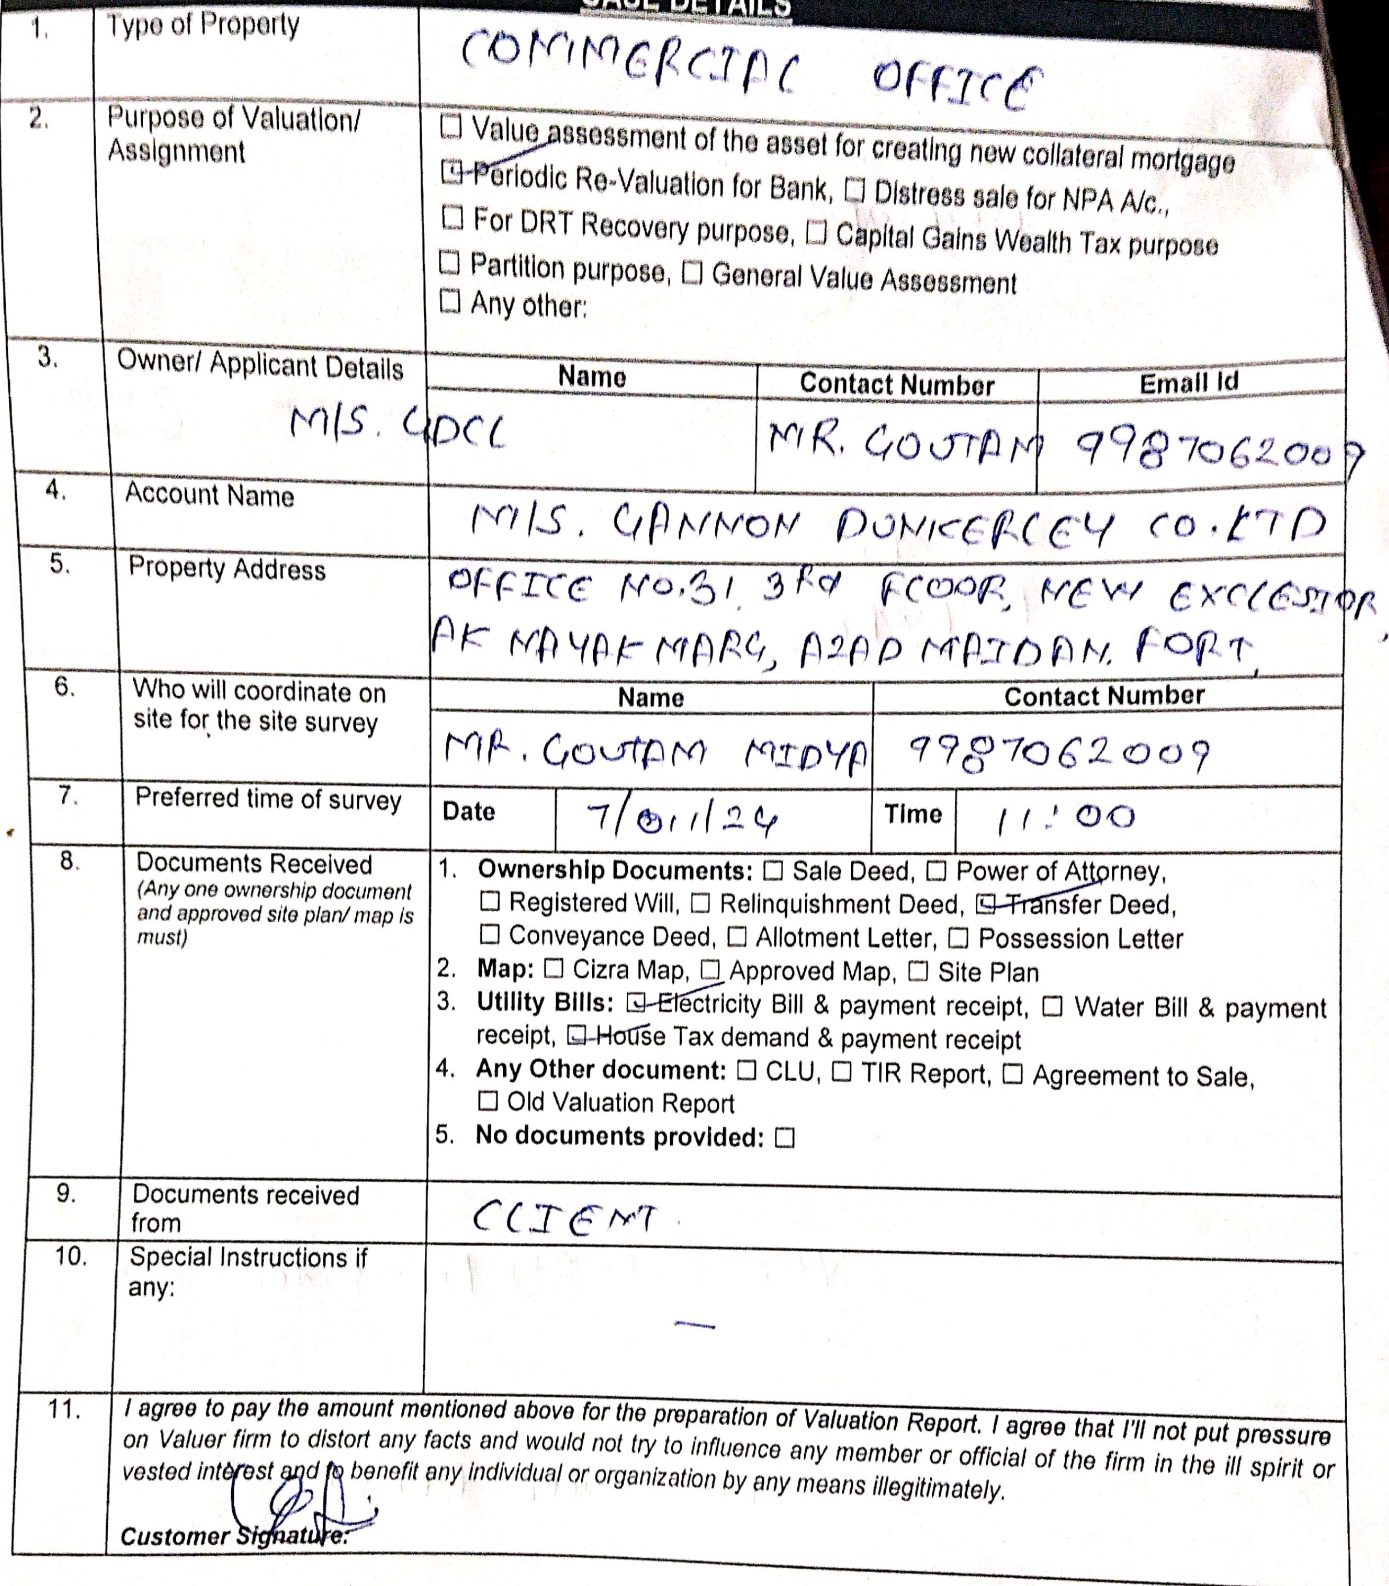 CASE DETAILS
1. Type of Property COMMERCIAL OFFICE
2. Purpose of Valuation/ Assignment
☐ Value assessment of the asset for creating new collateral mortgage
☑ Periodic Re-Valuation for Bank, ☐ Distress sale for NPA A/c.,
☐ For DRT Recovery purpose, ☐ Capital Gains Wealth Tax purpose
☐ Partition purpose, ☐ General Value Assessment
☐ Any other:
3. Owner/ Applicant Details Name Contact Number Email Id
M/S. GDCL MR. GOUTAM 9987062009
4. Account Name M/S. GANNON DUNKERLEY CO. LTD
5. Property Address OFFICE NO.31, 3Rd FLOOR, NEW EXCLESIOR,
AK NAYAK MARG, AZAD MAIDAN. FORT,
6. Who will coordinate on site for the site survey Name Contact Number
MR. GOUTAM MIDYA 9987062009
7. Preferred time of survey Date Time 11:00
8. Documents Received
(Any one ownership document
and approved site plan/ map is
must)
1. Ownership Documents: ☐ Sale Deed, ☐ Power of Attorney,
☐ Registered Will, ☐ Relinquishment Deed, ☑ Transfer Deed,
☐ Conveyance Deed, ☐ Allotment Letter, ☐ Possession Letter
2. Map: ☐ Cizra Map, ☐ Approved Map, ☐ Site Plan
3. Utility Bills: ☑ Electricity Bill & payment receipt, ☐ Water Bill & payment
receipt, ☑ House Tax demand & payment receipt
4. Any Other document: ☐ CLU, ☐ TIR Report, ☐ Agreement to Sale,
☐ Old Valuation Report
5. No documents provided: ☐
9. Documents received from CLIENT.
10. Special Instructions if any: —
11. I agree to pay the amount mentioned above for the preparation of Valuation Report. I agree that I'll not put pressure
on Valuer firm to distort any facts and would not try to influence any member or official of the firm in the ill spirit or
vested interest and to benefit any individual or organization by any means illegitimately.
Customer Signature: